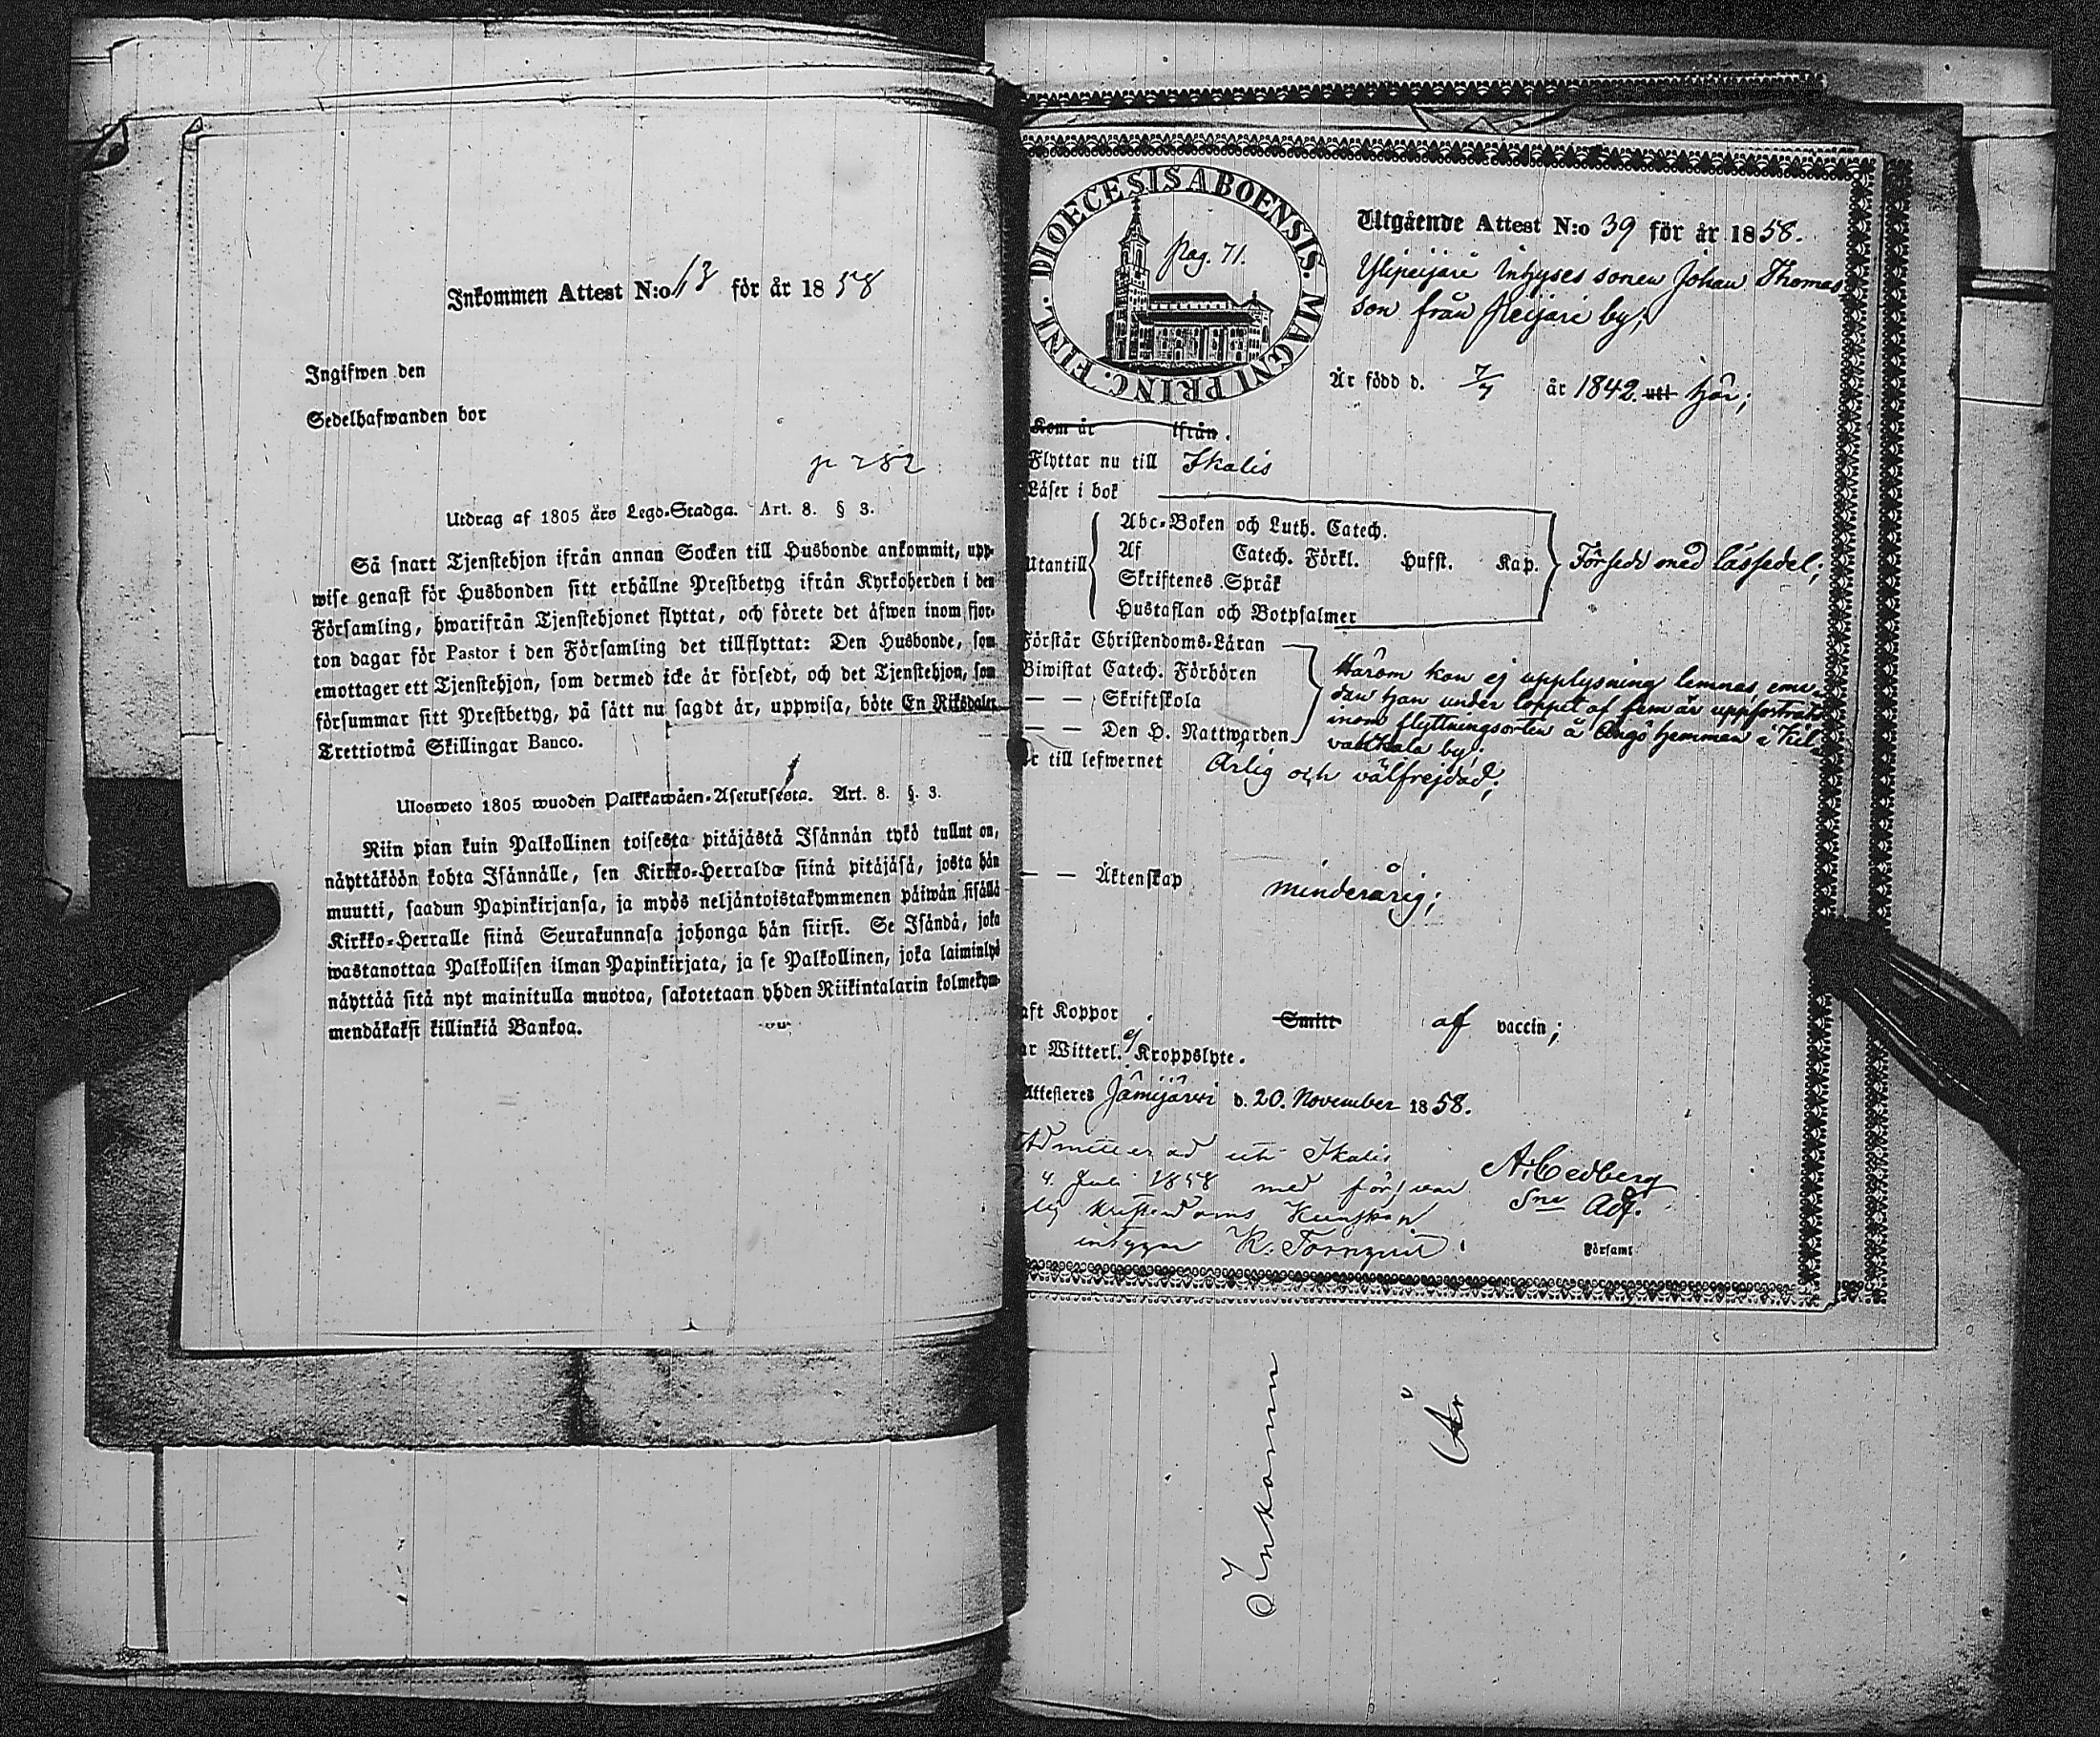 Inkommen Attest N:o 13 för år 1858
Ingifwen den
Sedelhafwanden bor
p 282
Utdrag af 1805 års Legd-Stadga. Art. 8. § 3.
Så snart Tjenstehjon ifrån annan Socken till Husbonde ankommit, upp-
wise genast för Husbonden sitt erhållne Prestbetyg ifrån Kyrkoherden i den
Församling, hwarifrån Tjenstehjonet flyttat, och förete det äfwen inom fjor-
ton dagar för Pastor i den Församling det tillflyttat: Den Husbonde, som
emottager ett Tjenstehjon, som dermed icke är försedt, och det Tjenstehjon, som
försummar sitt Prestbetyg, på sätt nu sagdt är, uppwisa, böte En Riksdaler
Trettiotwå Skillingar Banco.
Ulosweto 1805 wuoden Palkkawäen-Asetuksesta. Art. 8. §. 3.
Niin pian kuin Palkollinen toisesta pitäjästä Isännän tykö tullut on,
näyttäköön kohta Isännälle, sen Kirkko-Herralda siinä pitäjäsä, josta hän
muutti, saadun Papinkirjansa, ja myös neljäntoistakymmenen päiwän sisällä
Kirkko-Herralle siinä Seurakunnasa johonga hän siirsi. Se Isändä, joka
wastanottaa Palkollisen ilman Papinkirjata, ja se Palkollinen, joka laiminlyö
näyttää sitä nyt mainitulla muotoa, sakotetaan yhden Riikintalarin kolmekym-
mendäkaksi killinkiä Bankoa.
DIOECESIS ABOENSIS. MAGNI PRINC. FINL.
pag. 71.
Utgående Attest N:o 39 för år 1858.
Ylipeijari Inhyses sonen Johan Thomas
son från Peijari by;
Är född d. 7/7 år 1842. utt här;
Kom år ifrån.
Flyttar nu till Ikalis
Läser i bok
Utantill
Abc-Boken och Luth. Catech.
Af Catech. Förkl. Husst. Kap.
Skriftenes Språk
Hustaflan och Botpsalmer
Försedd med lässedel;
Förstår Christendoms-Läran
Biwistat Catech. Förhören
— — Skriftskola
— — Den H. Nattwarden
Härom kan ej upplysning lemnas, eme-
dan han under loppet af fem år uppfostrats
inom flyttningsorten å hemman i
by;
är till lefwernet Ärlig och välfrejdad;
— — Äktenskap minderårig;
aft Koppor Smitt af vaccin;
ar Witterl. ej Kroppslyte.
Attesteres Jämijärvi d. 20. November 1858.
Admitterad uti Ikalis
4. Juli 1858 med försvar
lig kristendoms Kunskap
intygar K. Tornqvist.
A. Cedberg
Sne Adj.
Församl.
Inkommen
År